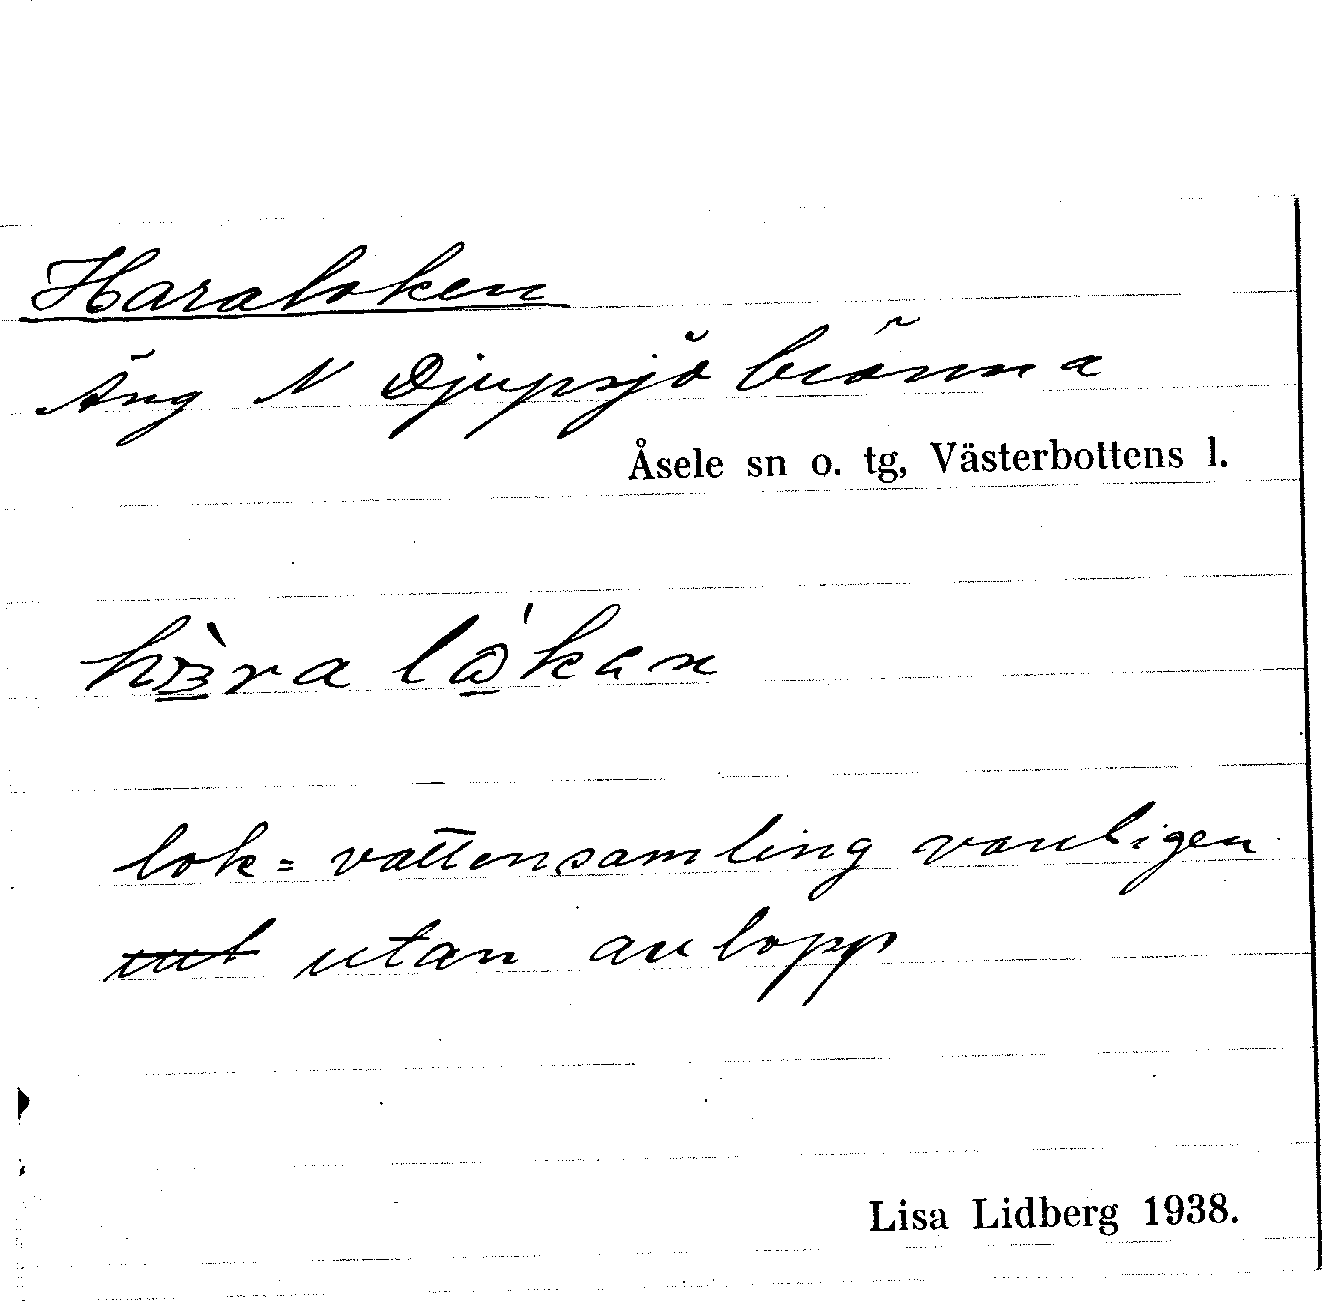 Haraloken
Äng N Djupsjöbränna
Åsele sn o. tg, Västerbottens l.
lok = vattensamling vanligen
utan avlopp
Lisa Lidberg 1938.